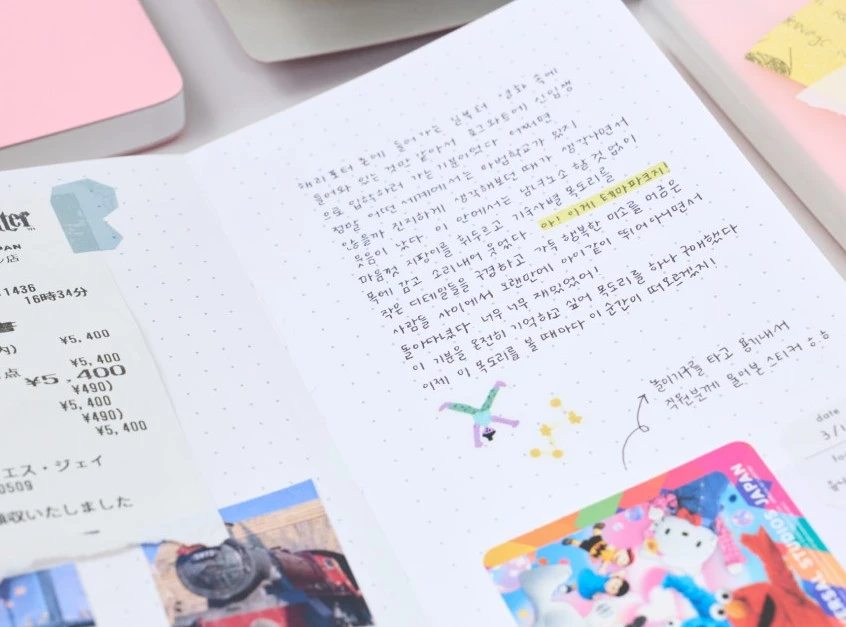 16時34分
¥5,400
¥5,400
¥5,400
¥490)
¥5,400
¥490)
¥5,400
エス・ジェイ
0509
領収いたしました
해리포터 존에 들어가는 일부터 영화 속에
들어와 있는 것만 같아서 호그와트에 신입생
으로 입학하러 가는 기분이었다 어쩌면
정말 어떤 세계에서는 마법학교가 있지
않을까 진지하게 생각해보던 때가 생각나면서
웃음이 났다. 이 안에서는 남녀노소 할 것 없이
마음껏 지팡이를 휘두르고 기숙사별 목도리를
목에 감고 소리내어 웃었다. 아! 이게 테마파크지!
작은 디테일들을 구경하고 가득 행복한 미소를 머금은
사람들 사이에서 오랜만에 아이같이 뛰어다니면서
돌아다녔다 너무 너무 재밌었어!
이 기분을 온전히 기억하고 싶어 목도리를 하나 구매했다
이제 이 목도리를 볼 때마다 이 순간이 떠오르겠지!
놀이기구를 타고 용기내서
직원분께 물어본 스티커 ㅎㅎ
date
UNIVERSAL STUDIOS JAPAN